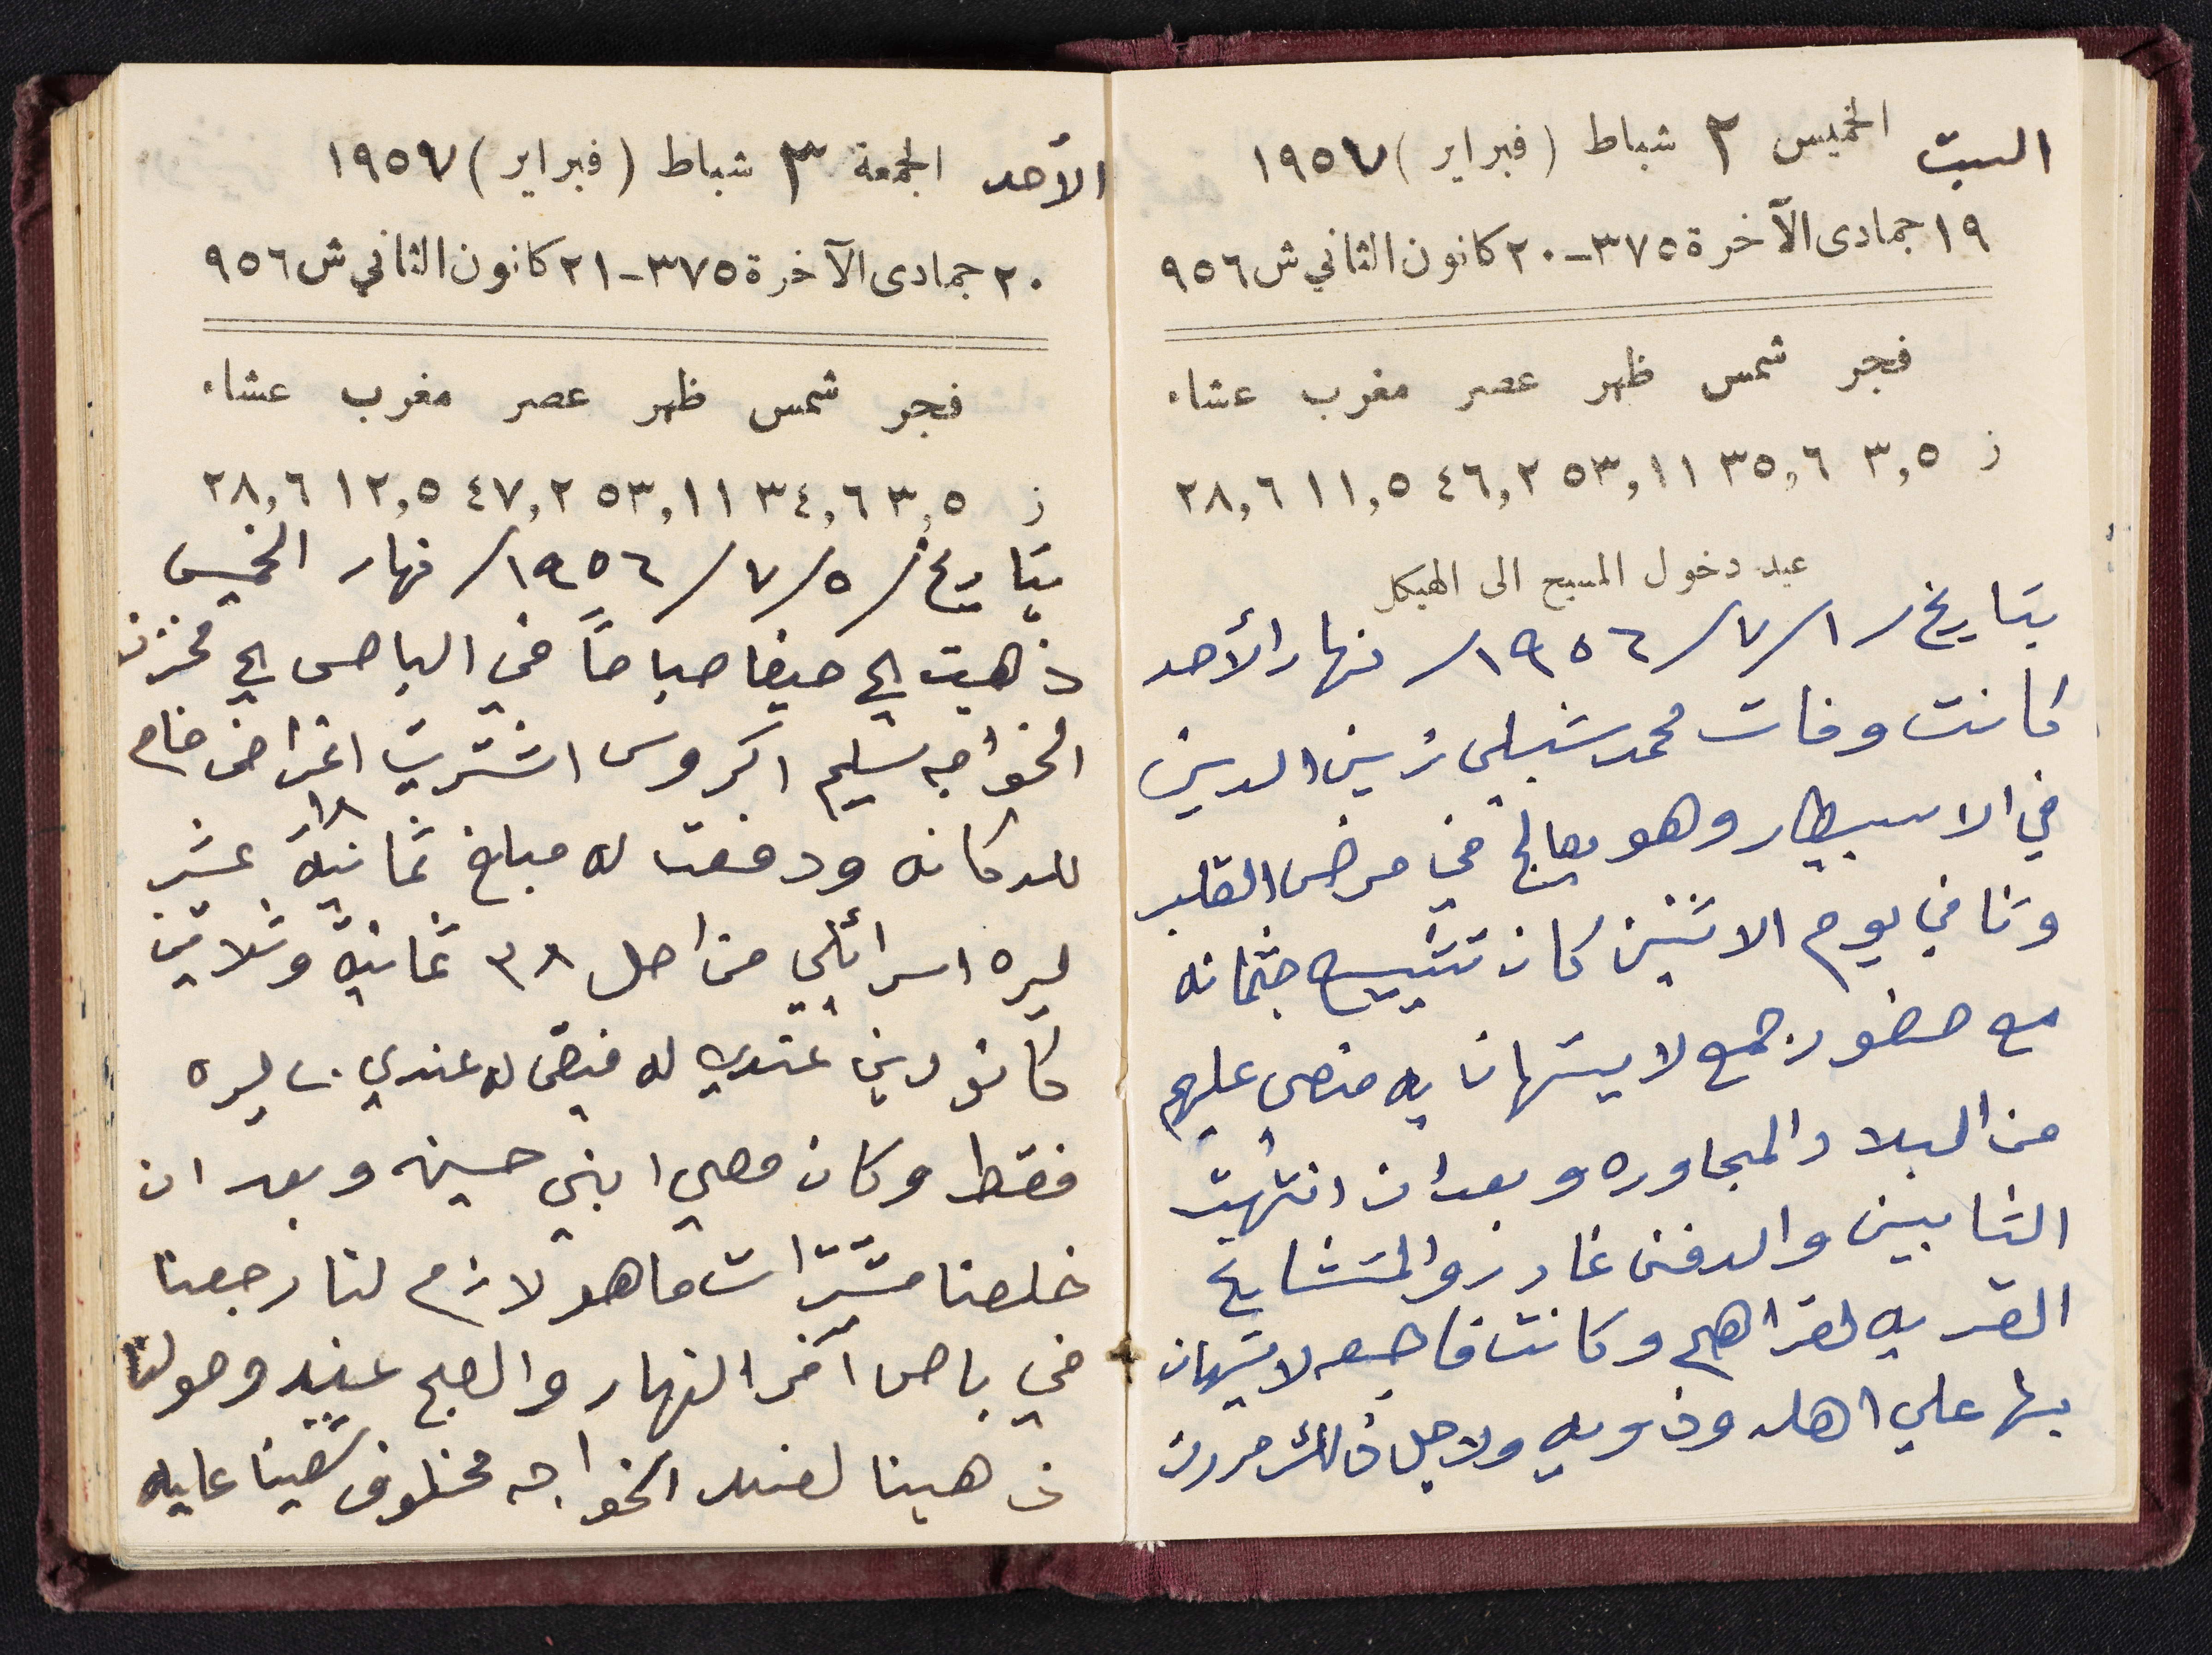 السبت الخميس ٢ شباط (فبراير) ١٩٥٧
١٩ جمادى الآخرة ٣٧٥ - ٢٠ كانون الثاني ش ٩٥٦
فجر شمس ظهر عصر مغرب عشاء
ز ٣,٥ ٣٥,٦ ٥٣,١١ ٤٦,٢ ١١,٥ ٢٨,٦
عيد دخول المسيح الى الهيكل
بتاريخ / ١ / ٧ / ١٩٥٦ / نهار الأحد
كانت وفات محمد شبلي زين الدين
في الاسبيطار وهو يعالج في مرض القلب
وثافي يوم الاثنين كان تشييع جثمانه
مع حضور جمع لا يستهان به منصى عليهم
من البلاد المجاوره وبعد ان انتهيت
التابين والدفن غادرو المشايخ
القريه لقراهم وكانت فاجعه لا يستهان
بها على اهله وذويه ولاجل ذالك مررت
الأحد الجمعة ٣ شباط (فبراير) ١٩٥٧
٢٠ جمادى الآخرة ٣٧٥ - ٢١ كانون الثاني ش ٩٥٦
فجر شمس ظهر عصر مغرب عشاء
ز ٣,٥ ٣٤,٦ ٥٣,١١ ٤٧,٢ ١٢,٥ ٢٨,٦
بتاريخ / ٥ / ٧ / ١٩٥٦ / نهار الخميس
ذهبت الى حيفا صباحاً في الباص الى مخزن
الخواجه سليم اكروس اشتريت اغراض خام
للدكانه ودفعت له مبلغ ثمانية ١٨ عشر
ليره اسرائلي من اصل ٣٨ ثمانية وثلاثين
كانو دين عندي له فبقى له عندي ٢٠ ليره
فقط وكان معي ابني حسين وبعد ان
خلصنا مشترات ما هو لازم لنا رجعنا
في باص آخر النهار والصبح عنيد وصولنا
ذهبنا لعند الخواجه مخلوف سهينا عليه